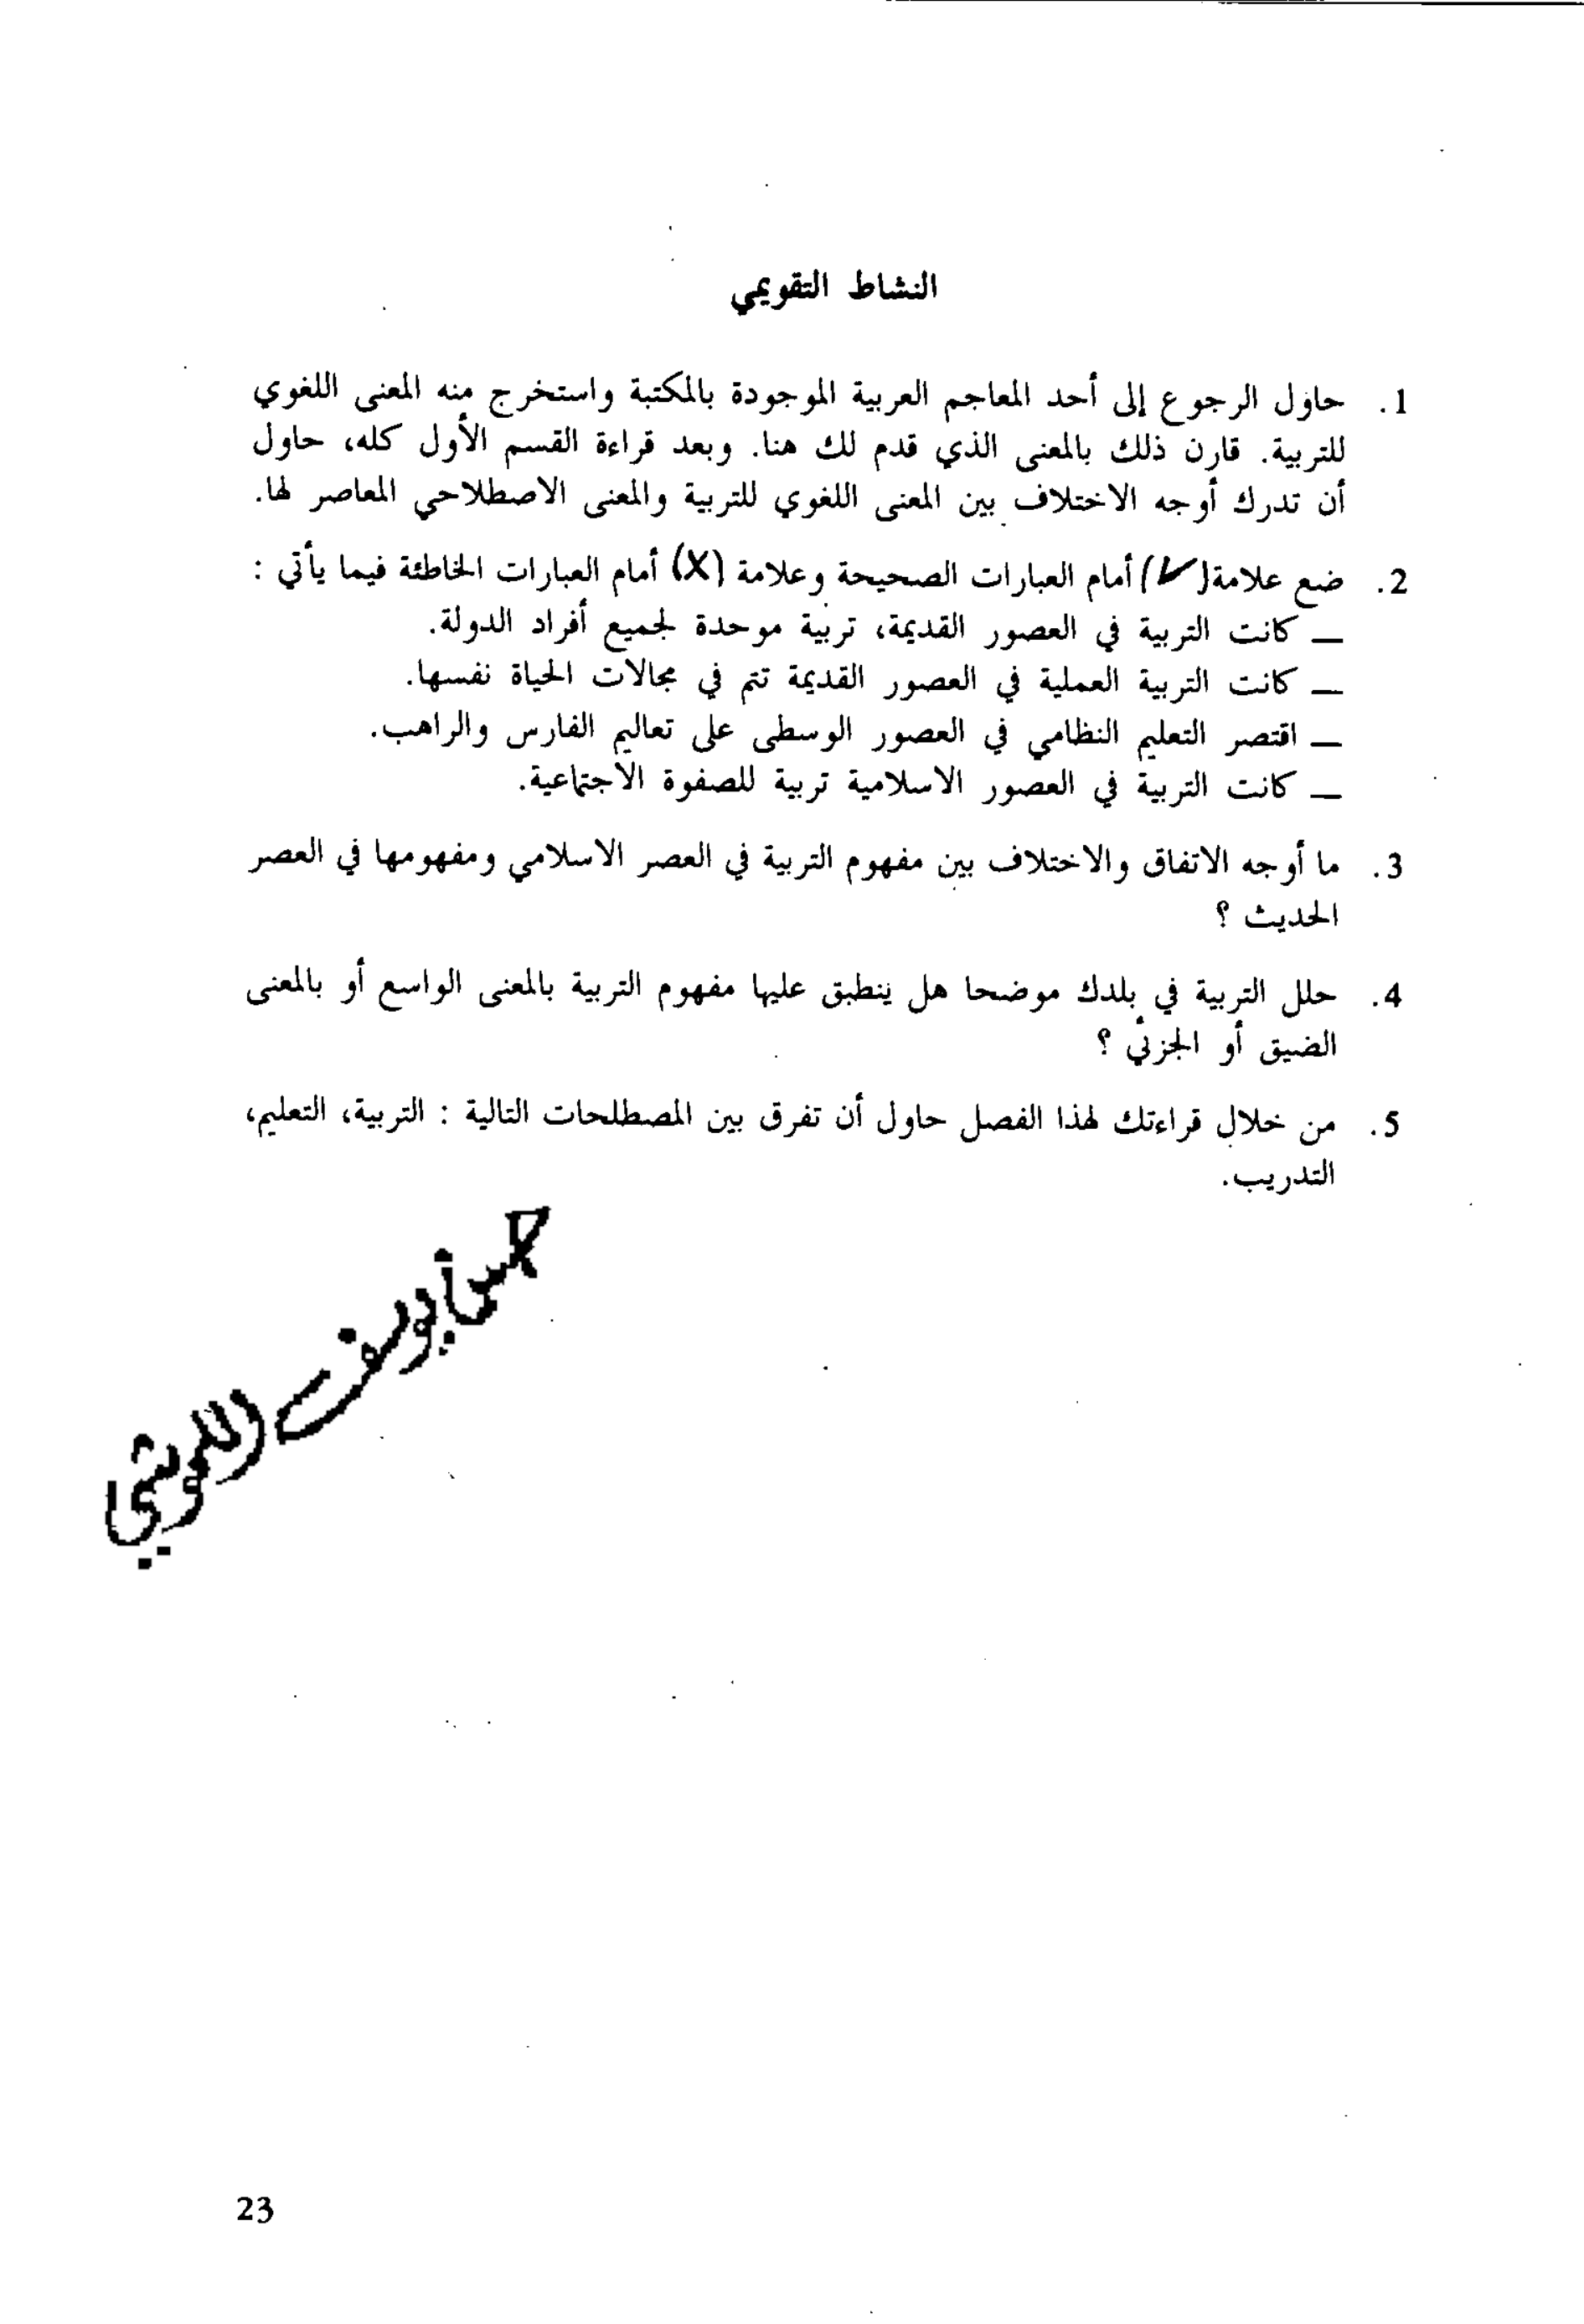 النشاط التقويمي
1. حاول الرجوع إلى أحد المعاجم العربية الموجودة بالمكتبة واستخرج منه المعنى اللغوي
للتربية. قارن ذلك بالمعنى الذي قدم لك هنا. وبعد قراءة القسم الأول كله، حاول
أن تدرك أوجه الاختلاف بين المعنى اللغوي للتربية والمعنى الاصطلاحي المعاصر لها.
2. ضع علامة (✓) أمام العبارات الصحيحة وعلامة (X) أمام العبارات الخاطئة فيما يأتي :
— كانت التربية في العصور القديمة، تربية موحدة لجميع أفراد الدولة.
— كانت التربية العملية في العصور القديمة تتم في مجالات الحياة نفسها.
— اقتصر التعليم النظامي في العصور الوسطى على تعاليم الفارس والراهب.
— كانت التربية في العصور الاسلامية تربية للصفوة الاجتماعية.
3. ما أوجه الاتفاق والاختلاف بين مفهوم التربية في العصر الاسلامي ومفهومها في العصر
الحديث ؟
4. حلل التربية في بلدك موضحا هل ينطبق عليها مفهوم التربية بالمعنى الواسع أو بالمعنى
الضيق أو الجزئي ؟
5. من خلال قراءتك لهذا الفصل حاول أن تفرق بين المصطلحات التالية : التربية، التعليم،
التدريب.
23